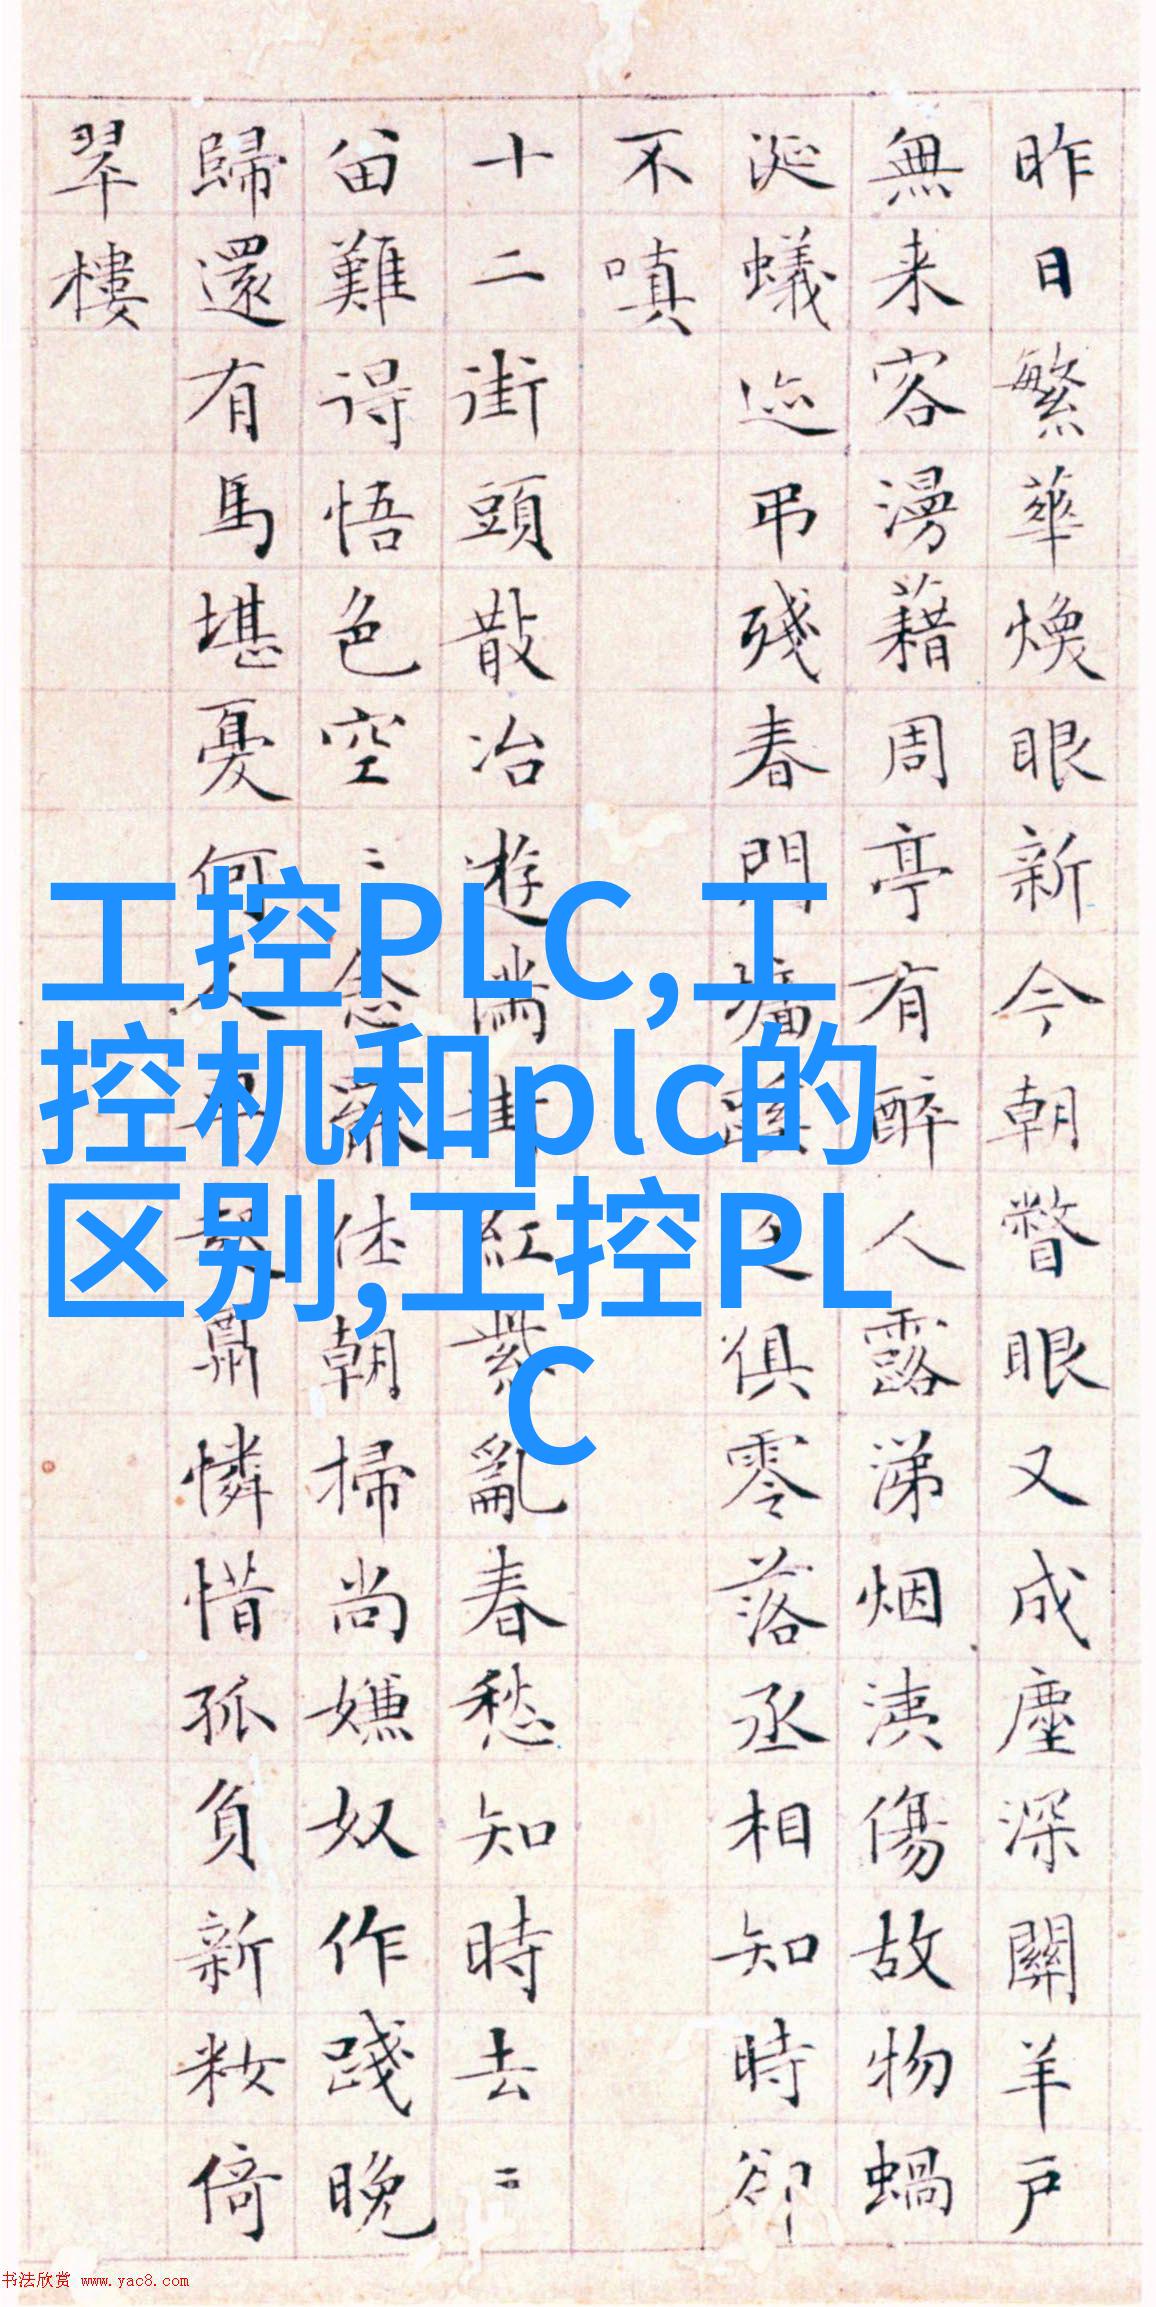 昨日繁華煥眼新今朝瞥眼又成塵深關羊戶
無来客漫藉周亭有醉人露涕烟洟傷故物蝸
涎蟻迹弔殘春門俱零落丞相知時卻
不嗔
十二街頭散冶遊滿街紅紫亂春愁知時去〻
留難得悟色空〻念休朝掃尚嫌奴作踐晚
歸還有馬堪憂何人憐惜孤負新粧倚
翠樓
工控PLC,工
控机和plc的
区别,工控PL
C
书法欣赏 www.yac8.com